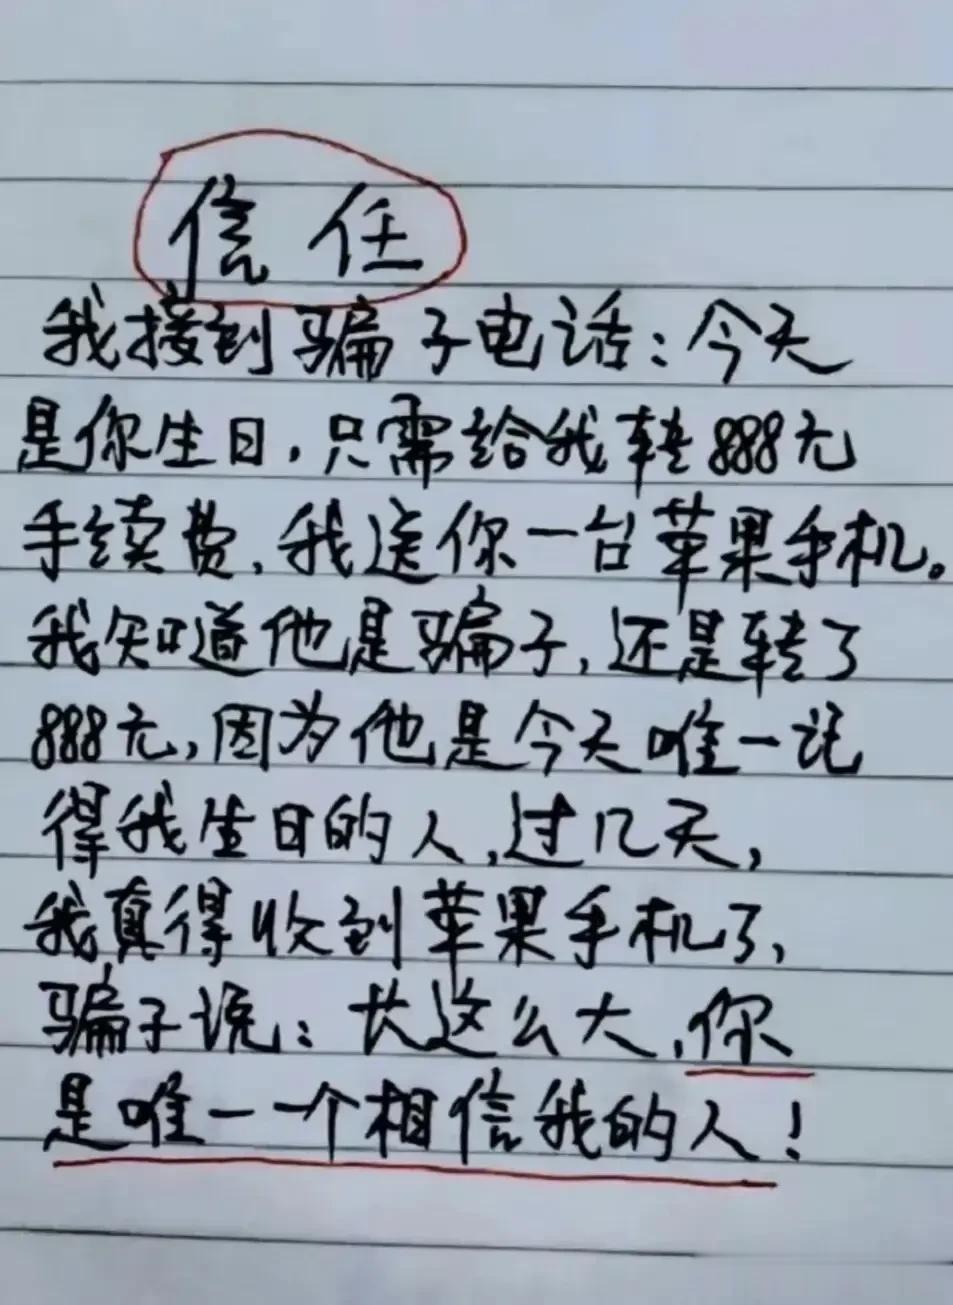 信任
我接到骗子电话：今天
是你生日，只需给我转888元
手续费，我送你一台苹果手机。
我知道他是骗子，还是转了
888元，因为他是今天唯一记
得我生日的人，过几天，
我真得收到苹果手机了，
骗子说：长这么大，你
是唯一一个相信我的人！